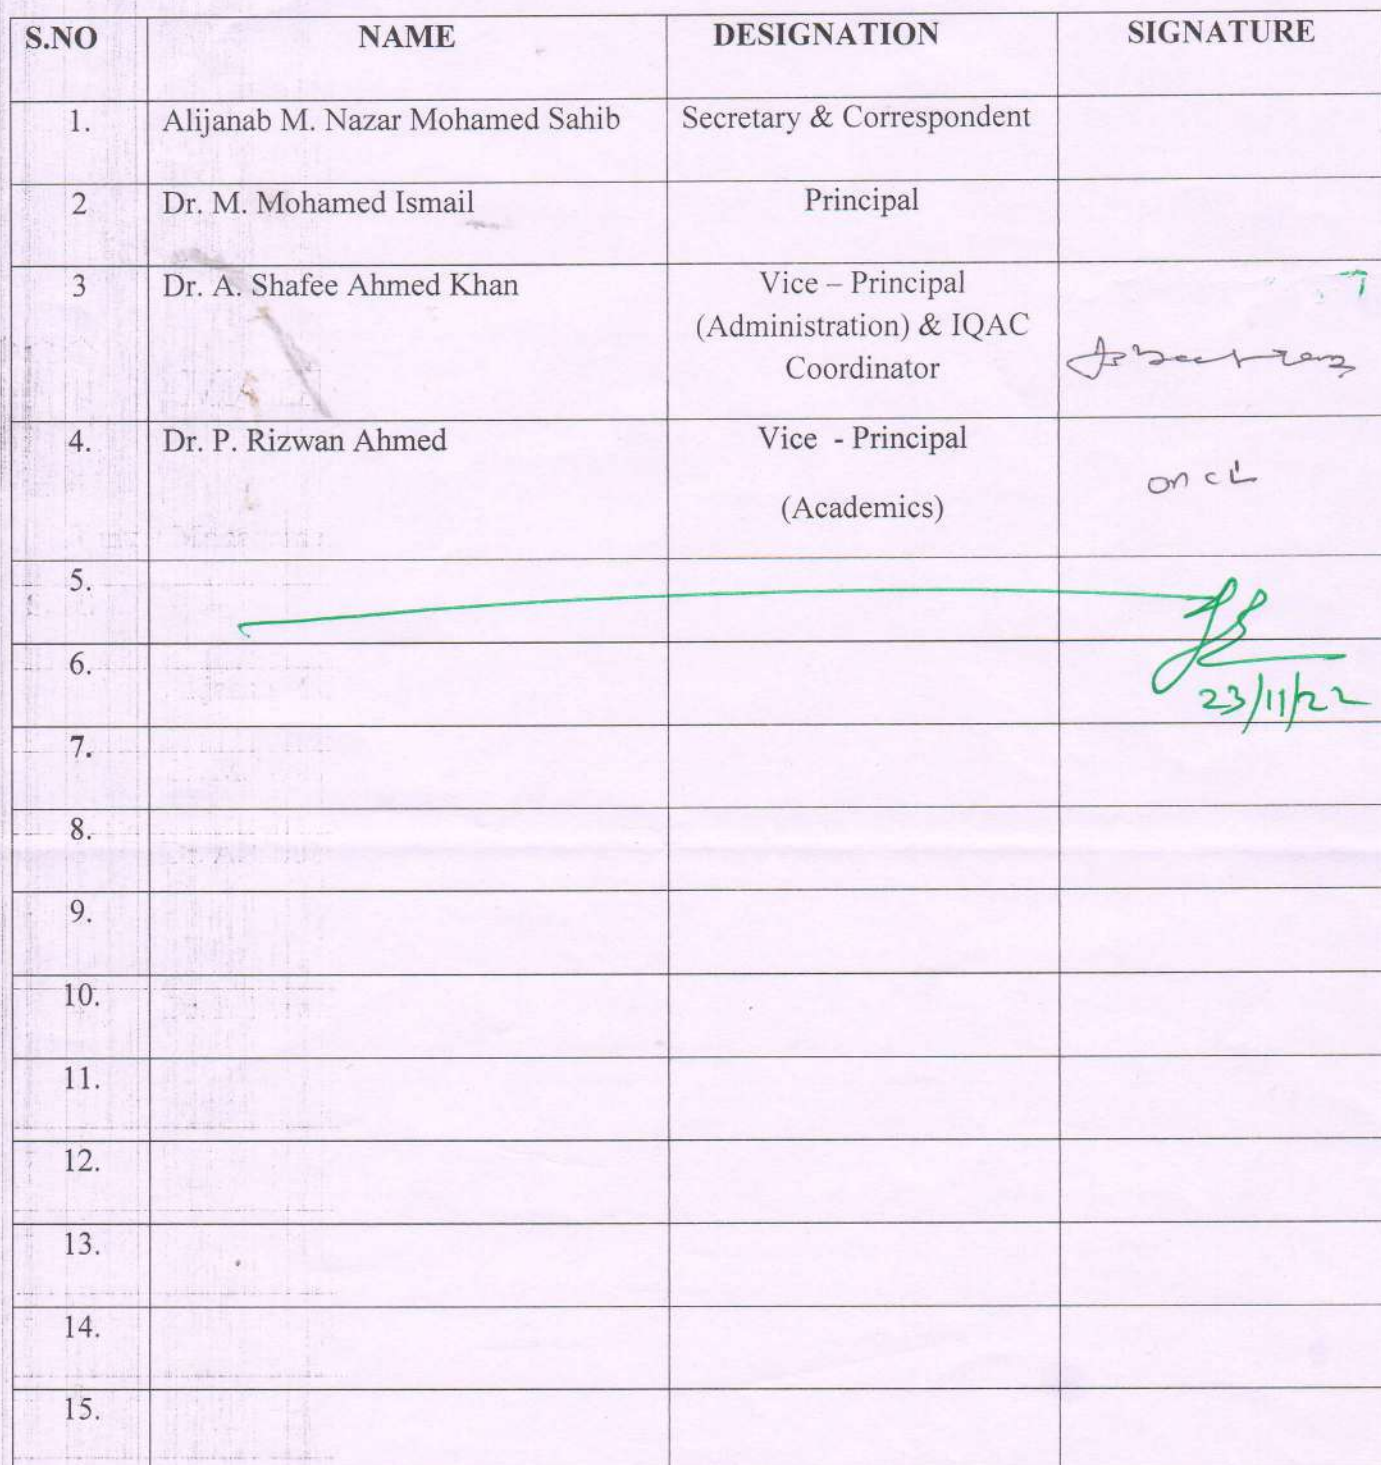 S.NO NAME DESIGNATION SIGNATURE
1. Alijanab M. Nazar Mohamed Sahib Secretary & Correspondent
2 Dr. M. Mohamed Ismail Principal
3 Dr. A. Shafee Ahmed Khan Vice – Principal
(Administration) & IQAC
Coordinator
4. Dr. P. Rizwan Ahmed Vice - Principal
on CL
(Academics)
5.
6.
23/11/22
7.
8.
9.
10.
11.
12.
13.
14.
15.